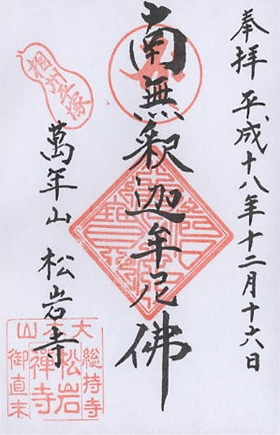 奉拝 平成十八年十二月十六日
南無釈迦牟尼佛
萬年山 松岩寺
相州平塚
大本山
総持寺
御直末
松岩禅寺